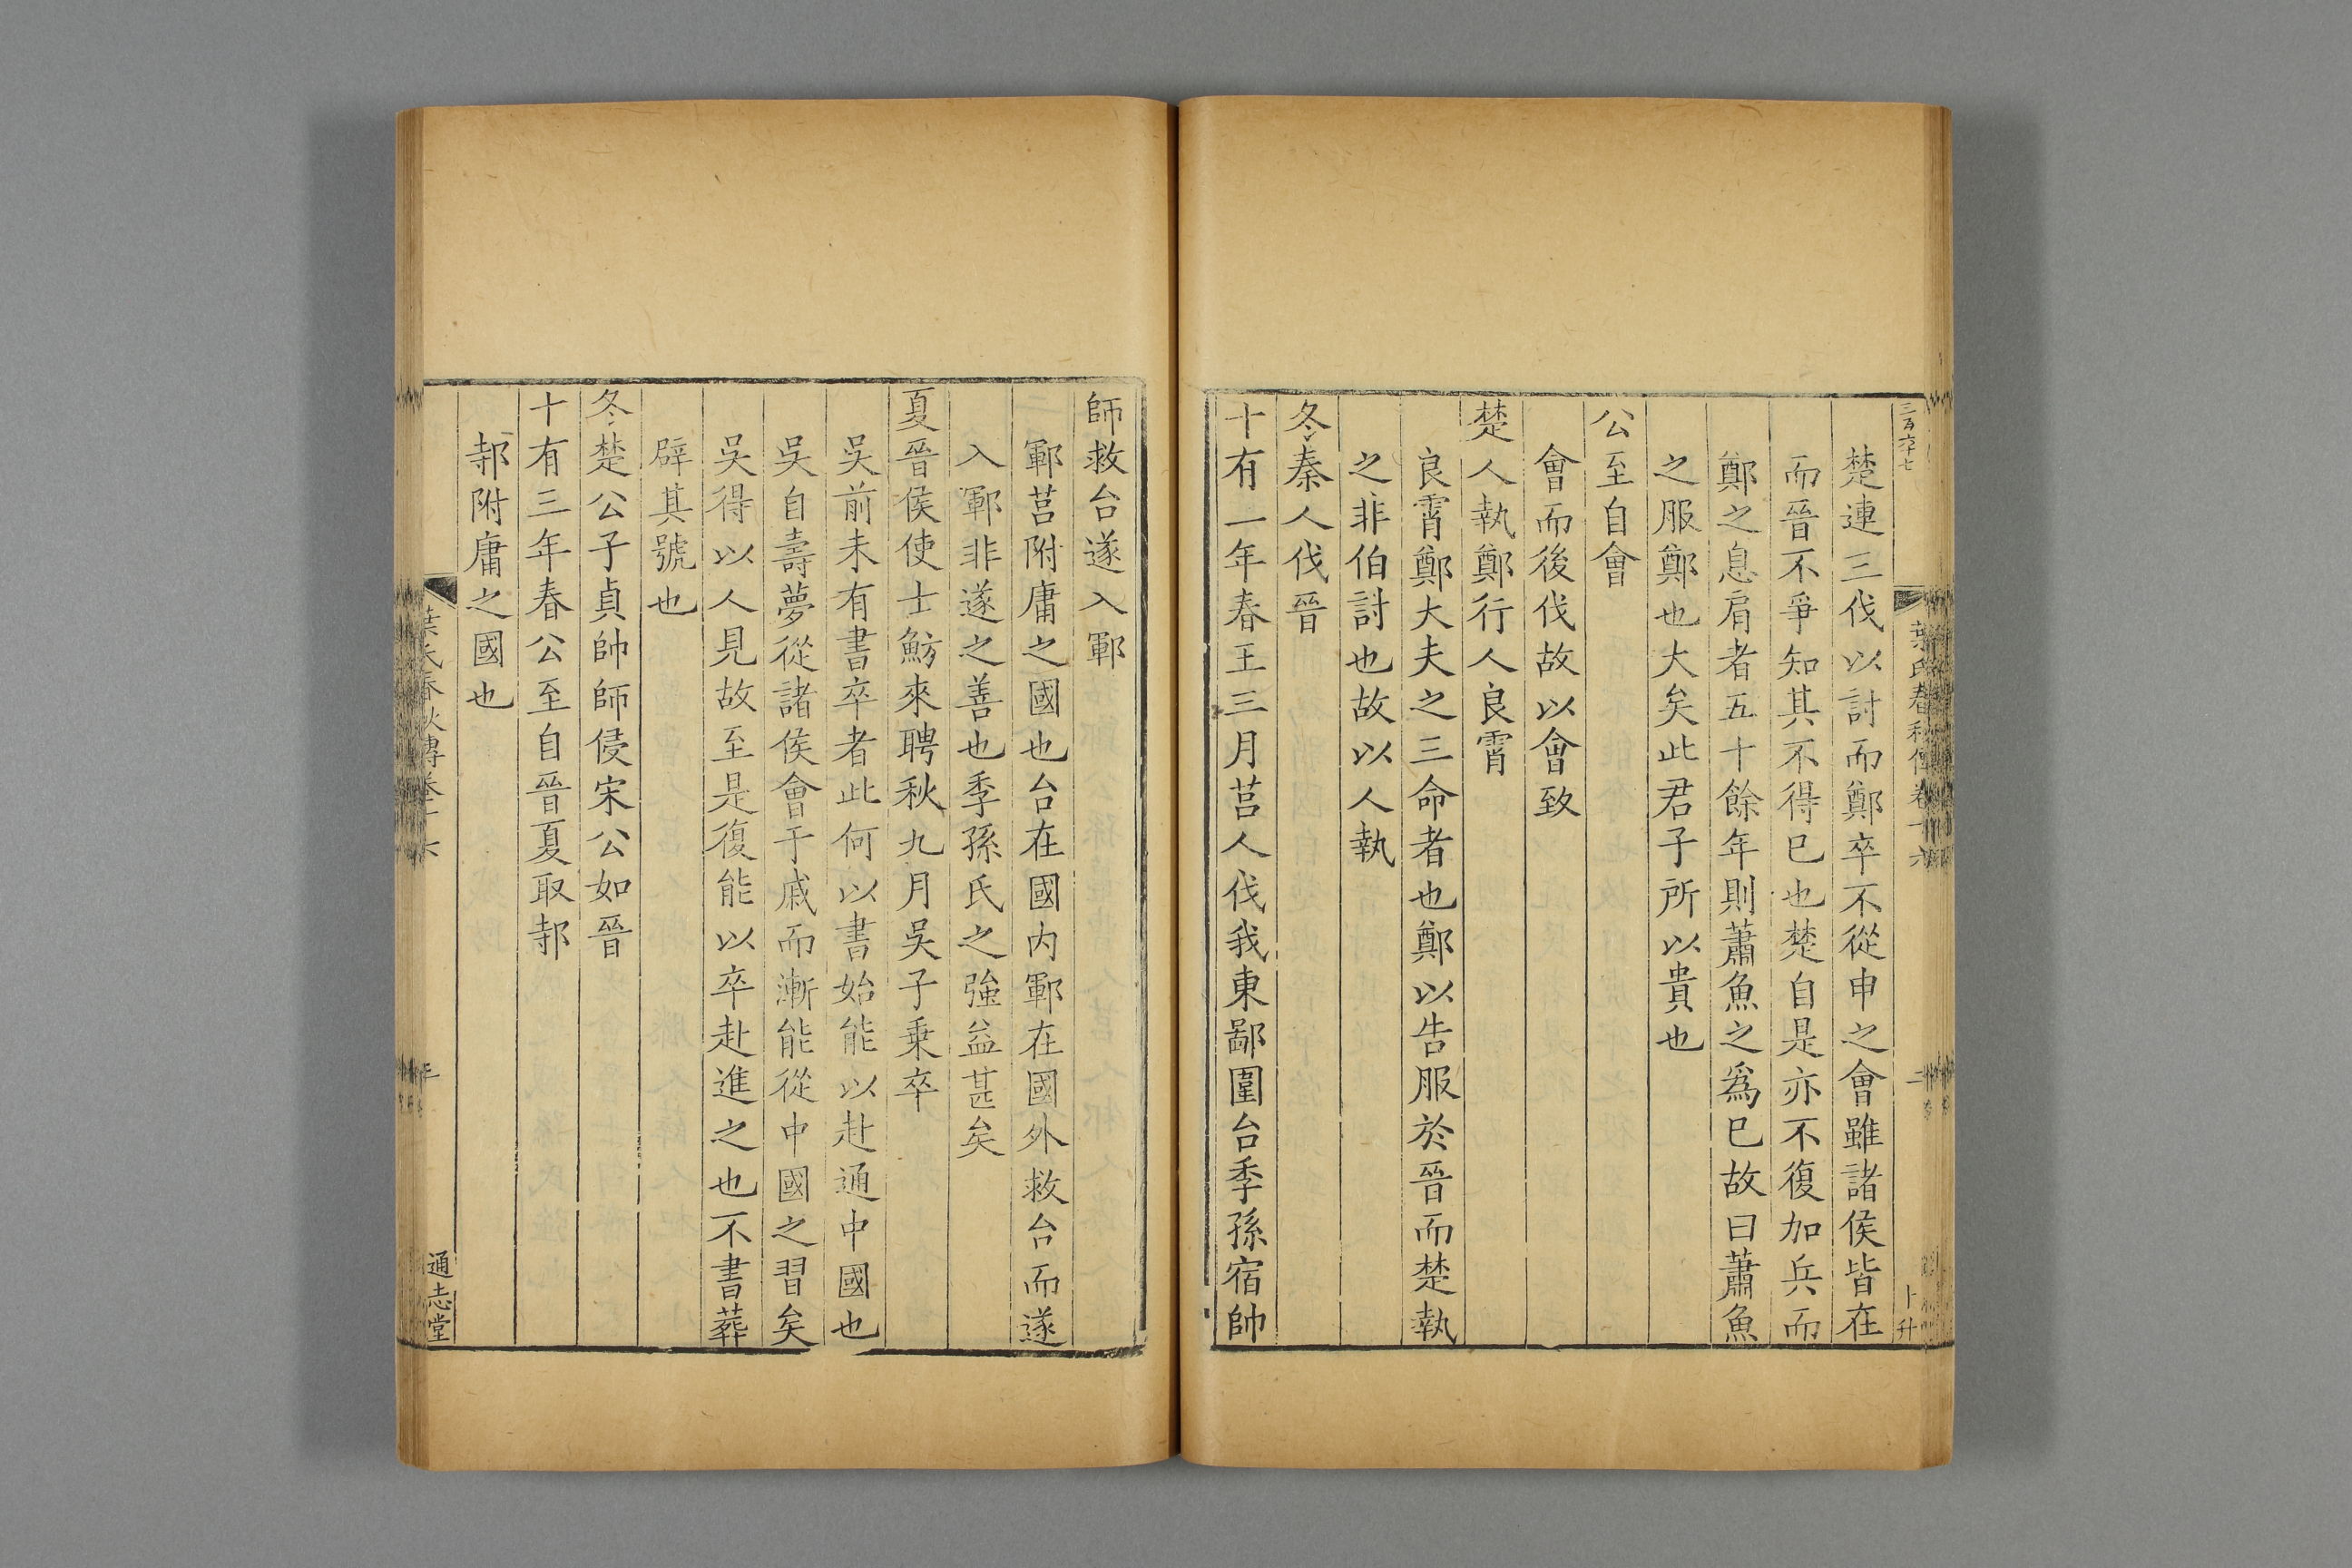 三百六十七
楚連三伐以討而鄭卒不從申之會雖諸侯皆在
而晉不爭知其不得已也楚自是亦不復加兵而
鄭之息肩者五十餘年則蕭魚之爲已故曰蕭魚
之服鄭也大矣此君子所以貴也
公至自會
會而後伐故以會致
楚人執鄭行人良霄
良霄鄭大夫之三命者也鄭以告服於晉而楚執
之非伯討也故以人執
冬秦人伐晉
十有一年春王三月莒人伐我東鄙圍台季孫宿帥
師救台遂入鄆
鄆莒附庸之國也台在國内鄆在國外救台而遂
入鄆非遂之善也季孫氏之強益甚矣
夏晉侯使士魴來聘秋九月吳子乗卒
吳前未有書卒者此何以書始能以赴通中國也
吳自壽夢從諸侯會于戚而漸能從中國之習矣
吳得以人見故至是復能以卒赴進之也不書葬
辟其號也
冬楚公子貞帥師侵宋公如晉
十有三年春公至自晉夏取邿
邿附庸之國也
葉氏春秋傳卷十六
通志堂